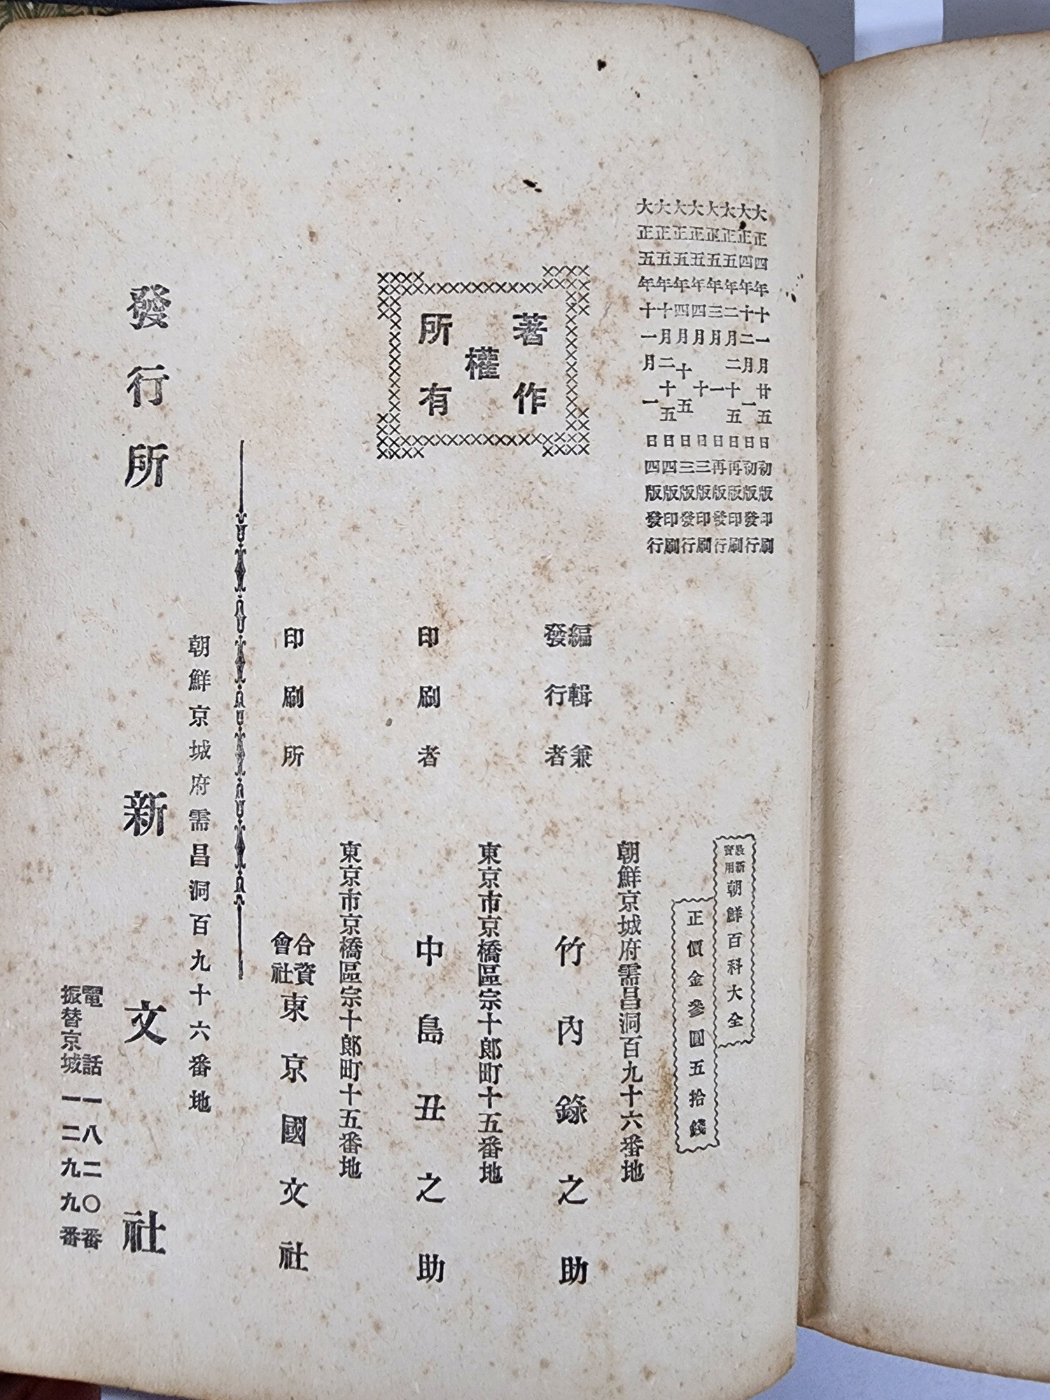 大正四年十一月廿五日初版印刷
大正四年十二月一日初版發行
大正五年二月二十五日再版印刷
大正五年三月一日再版發行
大正五年四月十日三版印刷
大正五年四月十五日三版發行
大正五年十月二十五日四版印刷
大正五年十一月一日四版發行
最新實用朝鮮百科大全
正價金參圓五拾錢
著作權所有
朝鮮京城府需昌洞百九十六番地
編輯兼發行者 竹內錄之助
東京市京橋區宗十郎町十五番地
印刷者 中島丑之助
東京市京橋區宗十郎町十五番地
印刷所 合資會社東京國文社
朝鮮京城府需昌洞百九十六番地
發行所 新文社
電話一八二〇番
振替京城一二九九番